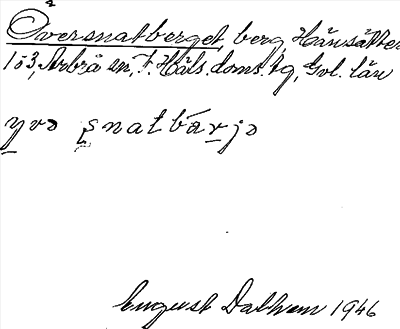 Översnatberget, berg, Hänsätter
1 ö 3, Arbrå sn, N. Häls. doms. tg, Gvl. län
yvə snatbárjə
August Dalhem 1946